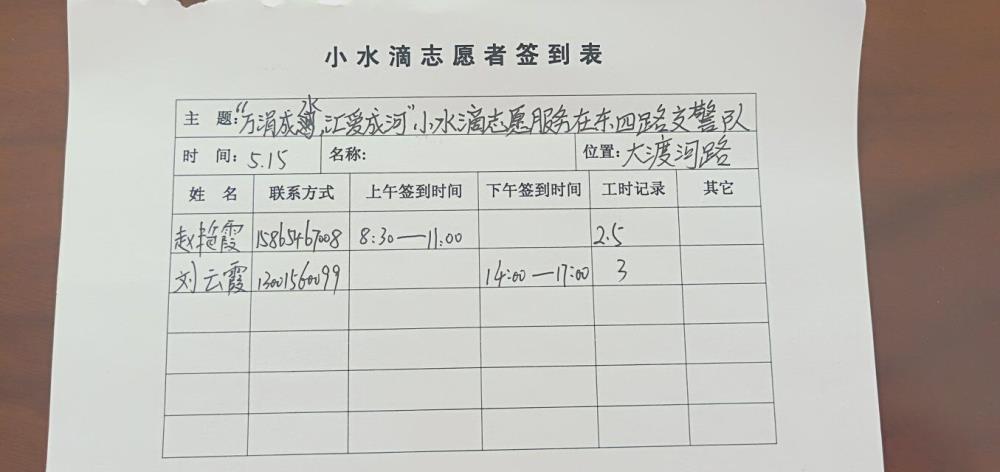 小水滴志愿者签到表
主 题:“万涓成水,汇爱成河”小水滴志愿服务在东四路交警队
时 间: 5.15 名称: 位置: 大渡河路
姓 名 联系方式 上午签到时间 下午签到时间 工时记录 其它
赵艳霞 15865467008 8:30—11:00 2.5
刘云霞 13001560099 14:00—17:00 3